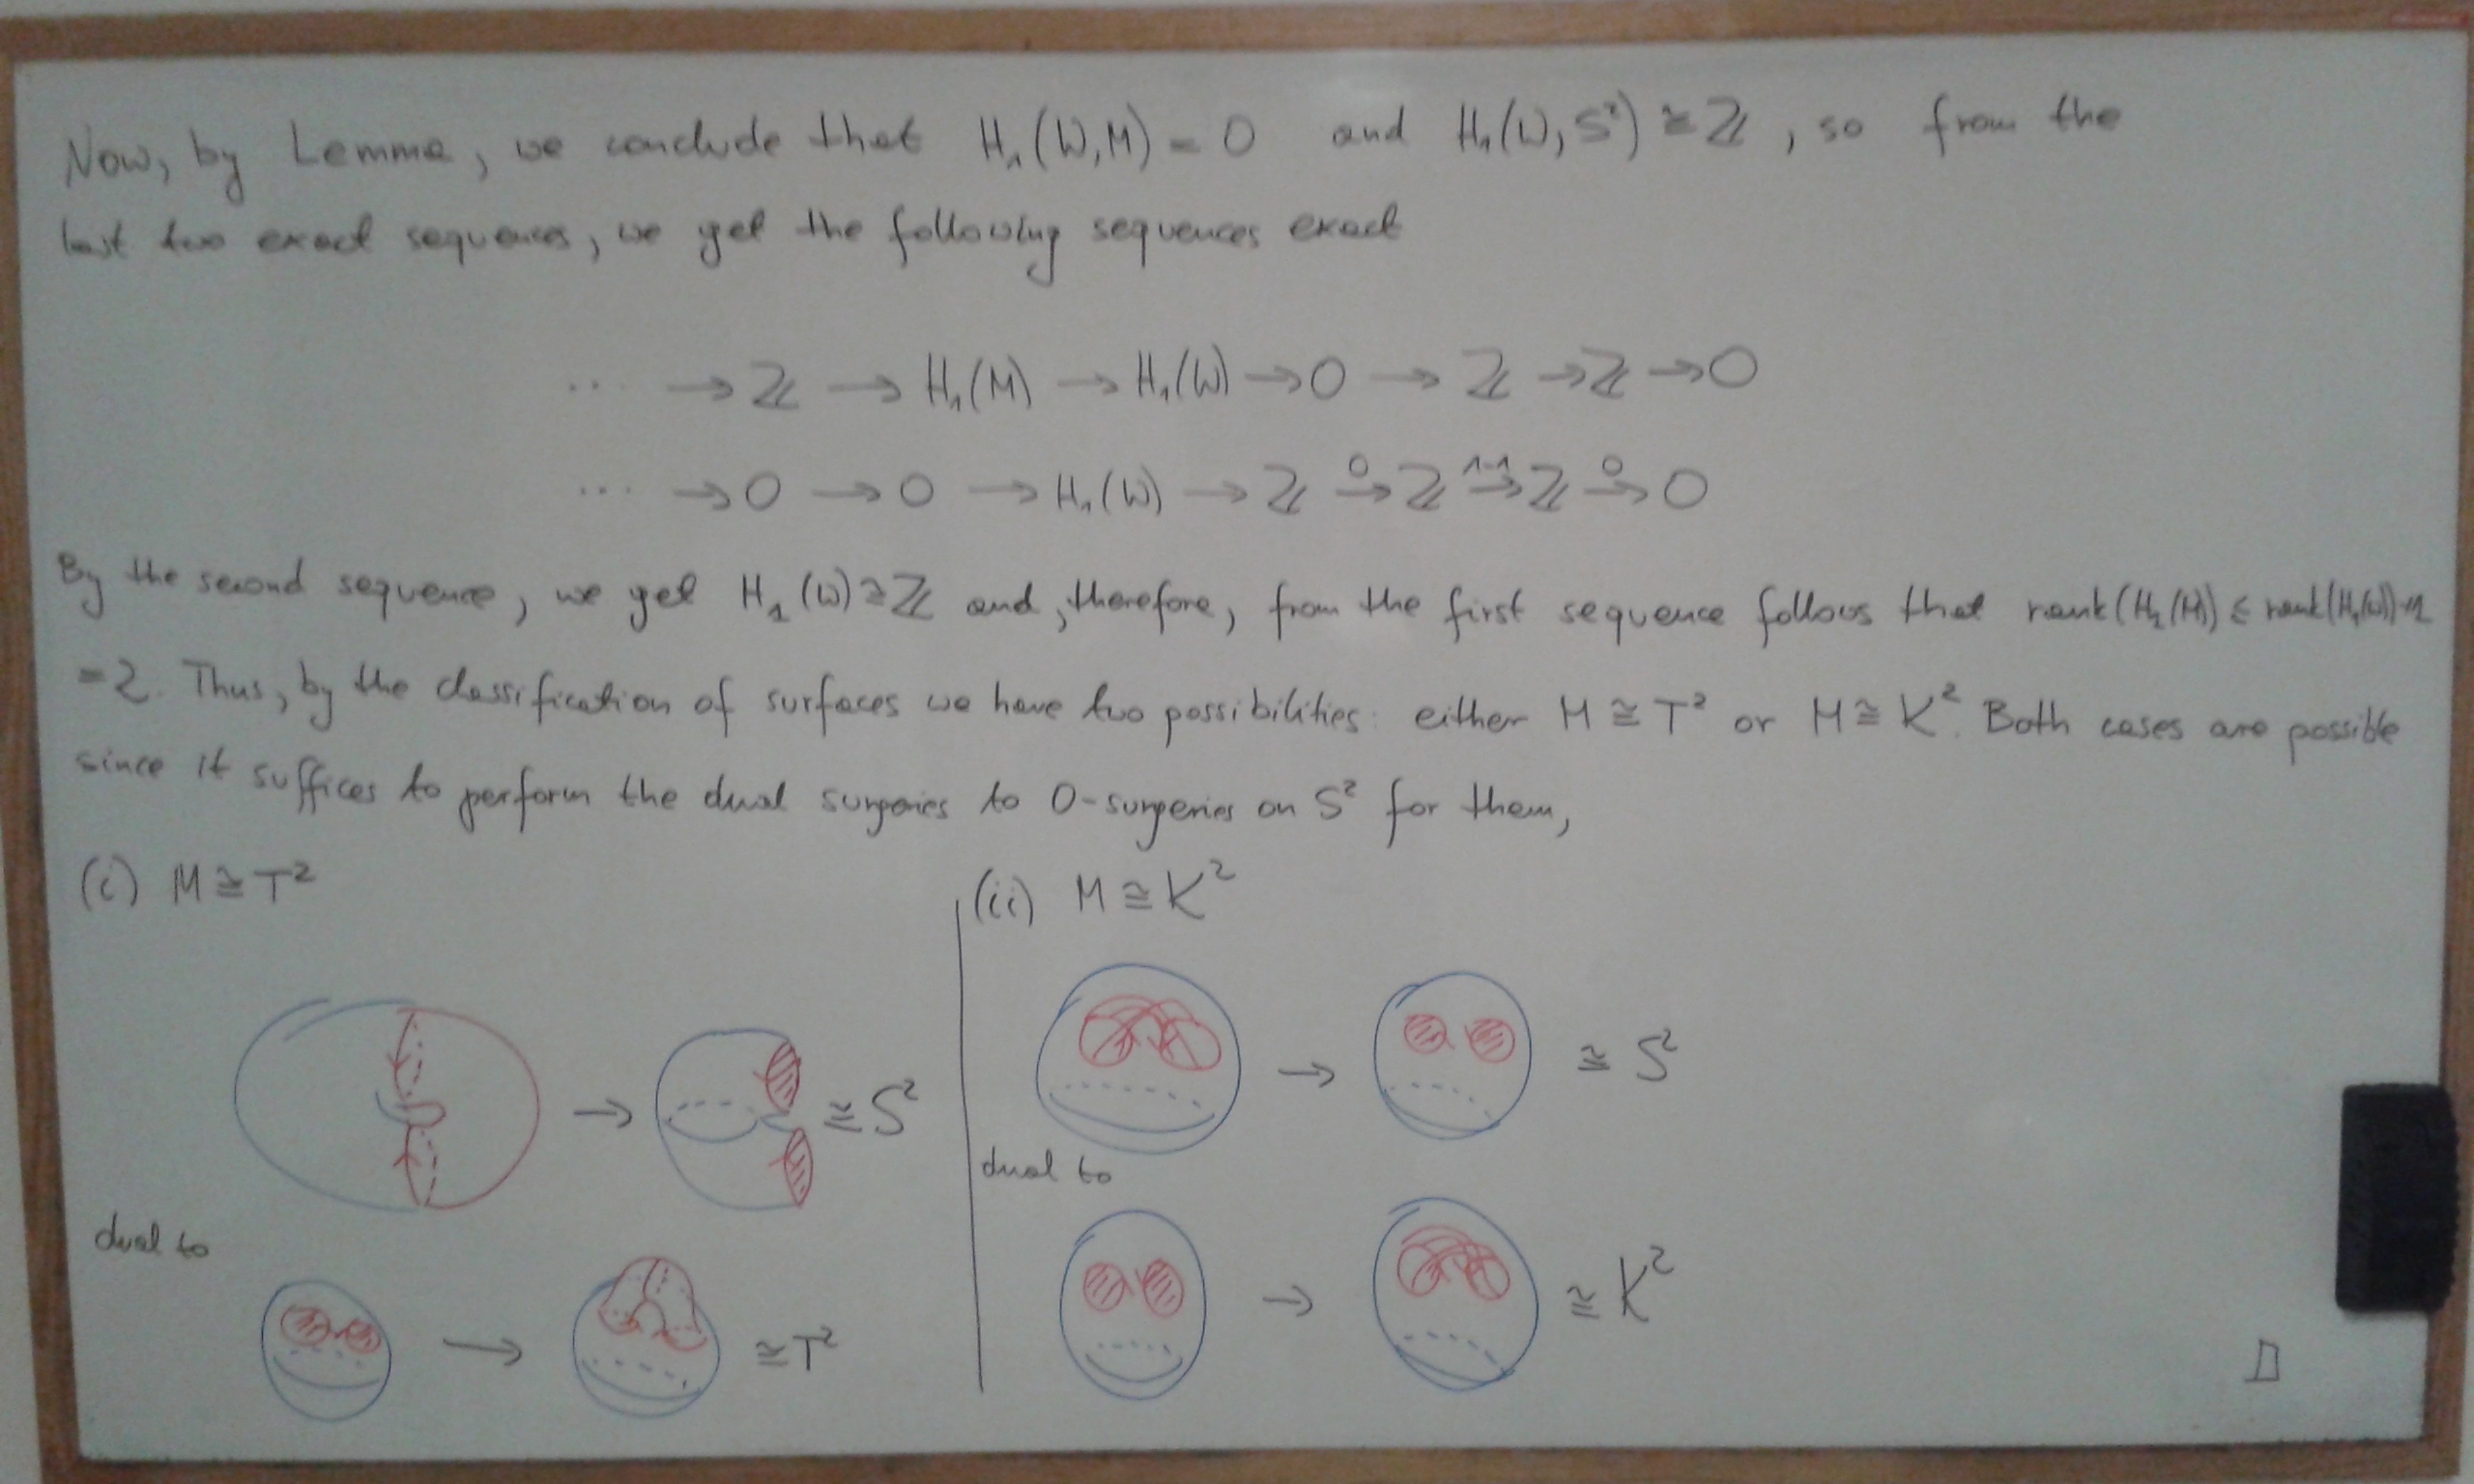 Now, by Lemma, we conclude that H₁(W,M) = 0 and H₁(W,S²) ≅ ℤ, so from the
last two exact sequences, we get the following sequences exact
... → ℤ → H₁(M) → H₁(W) → 0 → ℤ → ℤ → 0
... → 0 → 0 → H₁(W) → ℤ →⁰ ℤ →¹⁻¹ ℤ →⁰ 0
By the second sequence, we get H₁(W) ≅ ℤ and, therefore, from the first sequence follows that rank(H₁(M)) ≤ rank(H₁(W))+1
=2. Thus, by the classification of surfaces we have two possibilities: either M ≅ T² or M ≅ K². Both cases are possible
since it suffices to perform the dual surgeries to 0-surgeries on S² for them,
(i) M ≅ T²
→ ≅ S²
dual to
→ ≅ T²
(ii) M ≅ K²
→ ≅ S²
dual to
→ ≅ K²
□